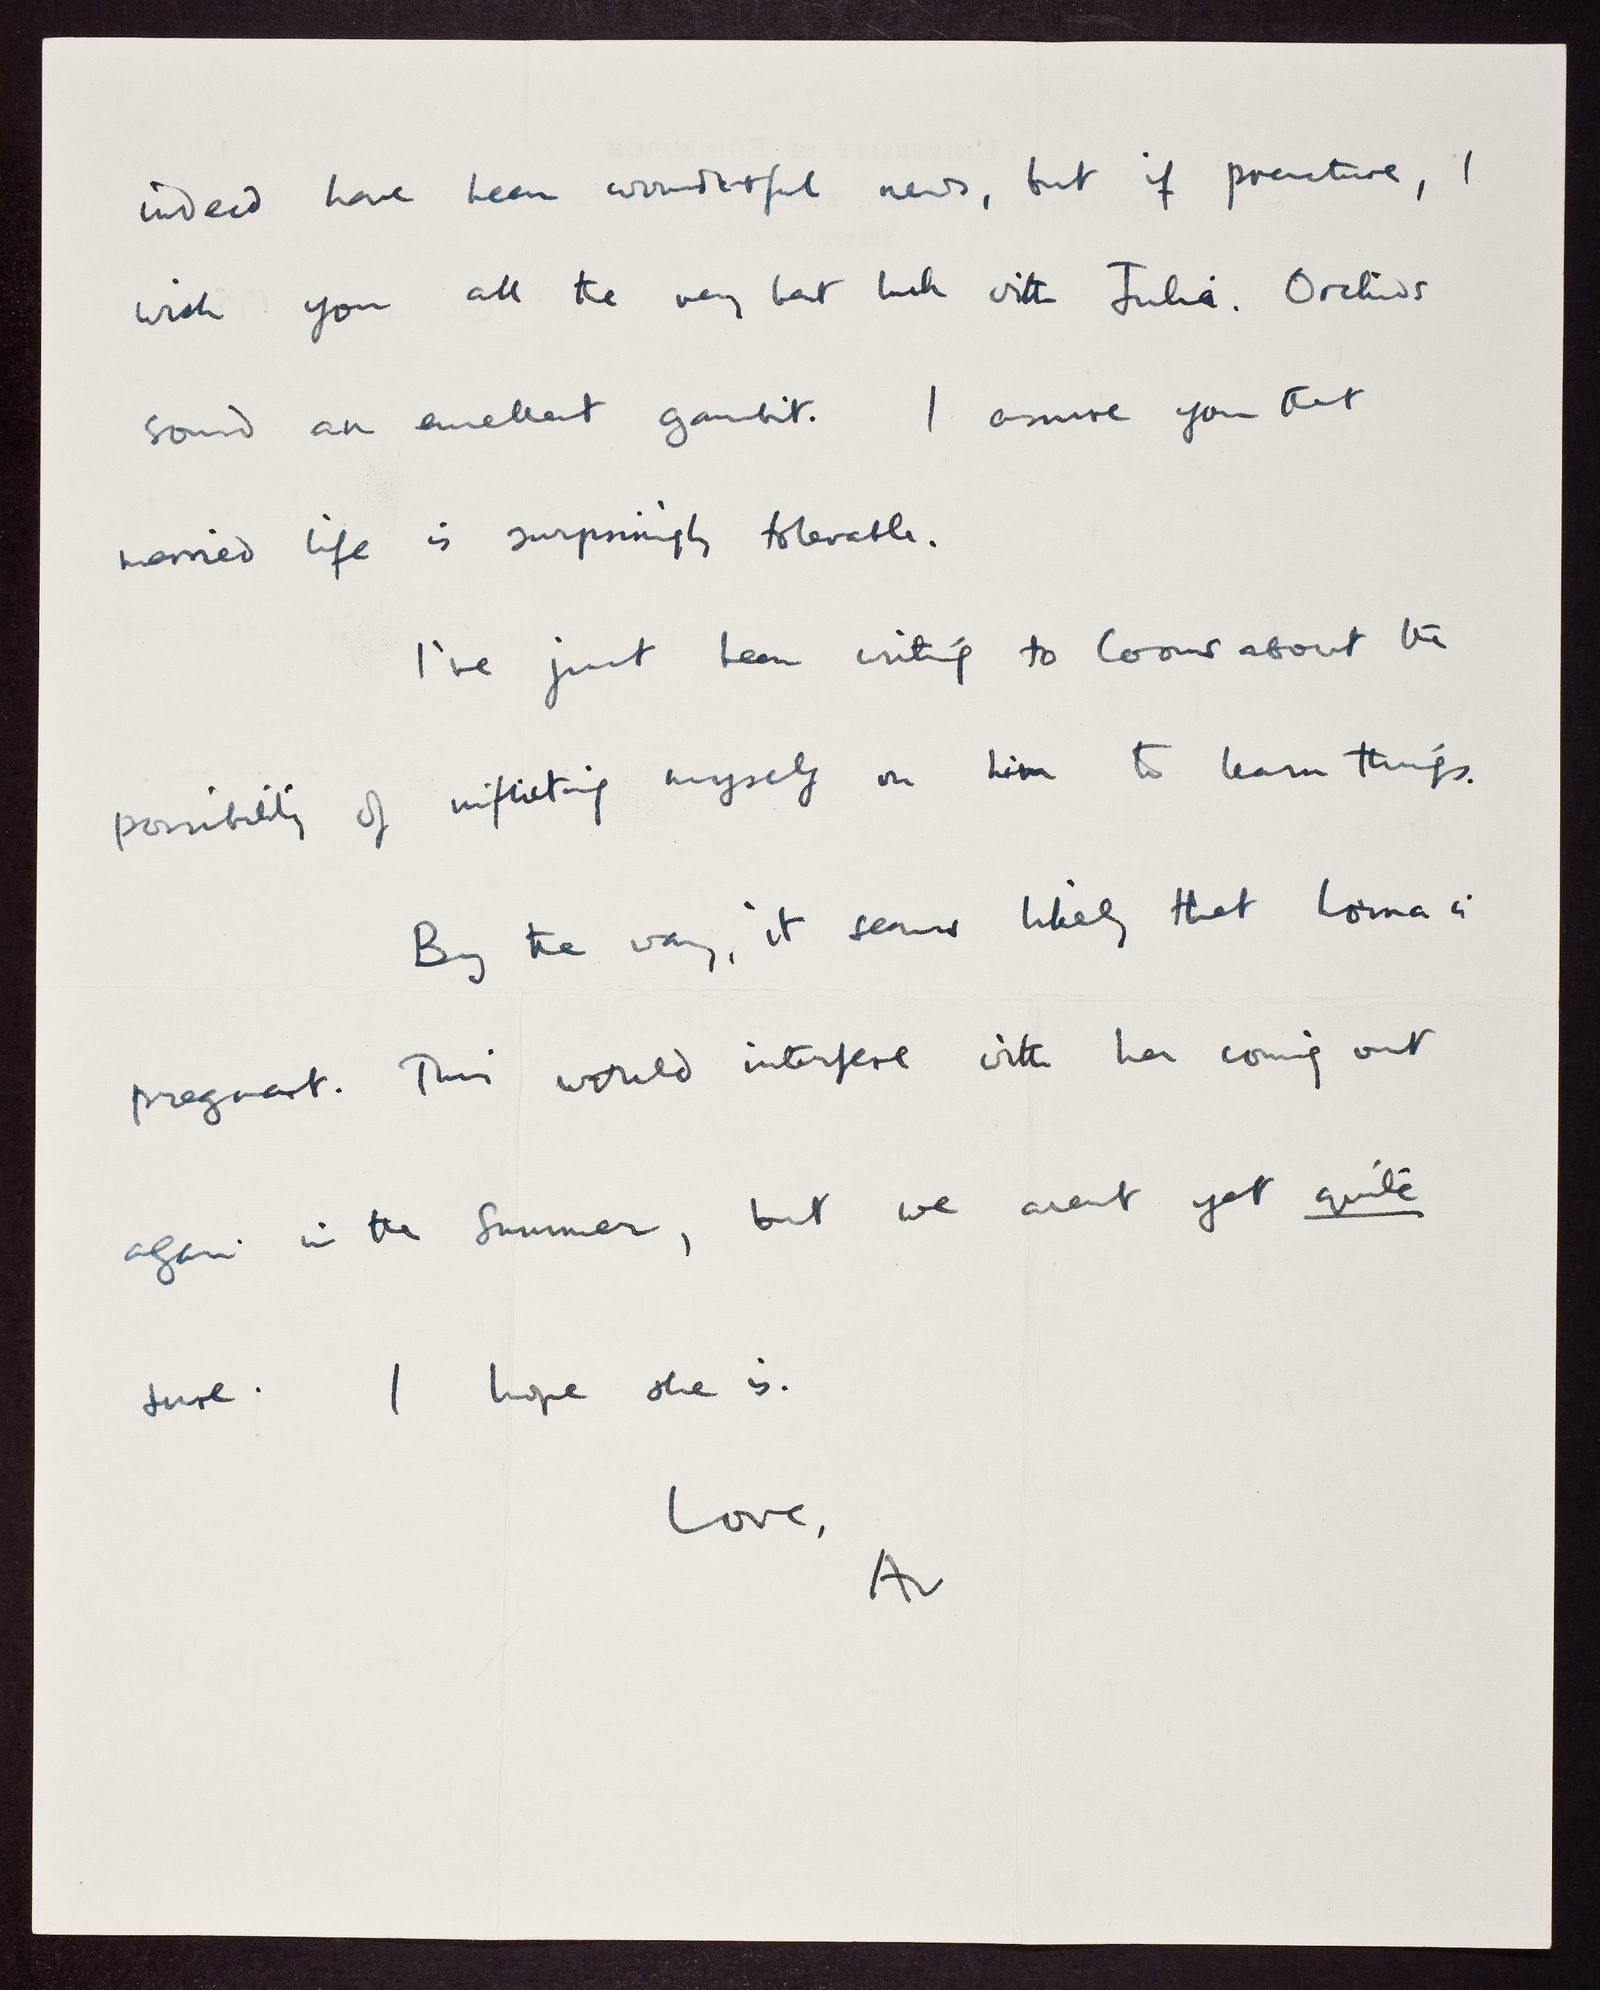 indeed have been wonderful news, but if premature, I
wish you all the very best luck with Julia. Orchids
sound an excellent gambit. I assure you that
married life is surprisingly tolerable.
I've just been writing to Coons about the
possibility of inflicting myself on him to learn things.
By the way, it seems likely that Lorna is
pregnant. This would interfere with her coming out
again in the Summer, but we arent yet quite
sure. I hope she is.
Love,
Av